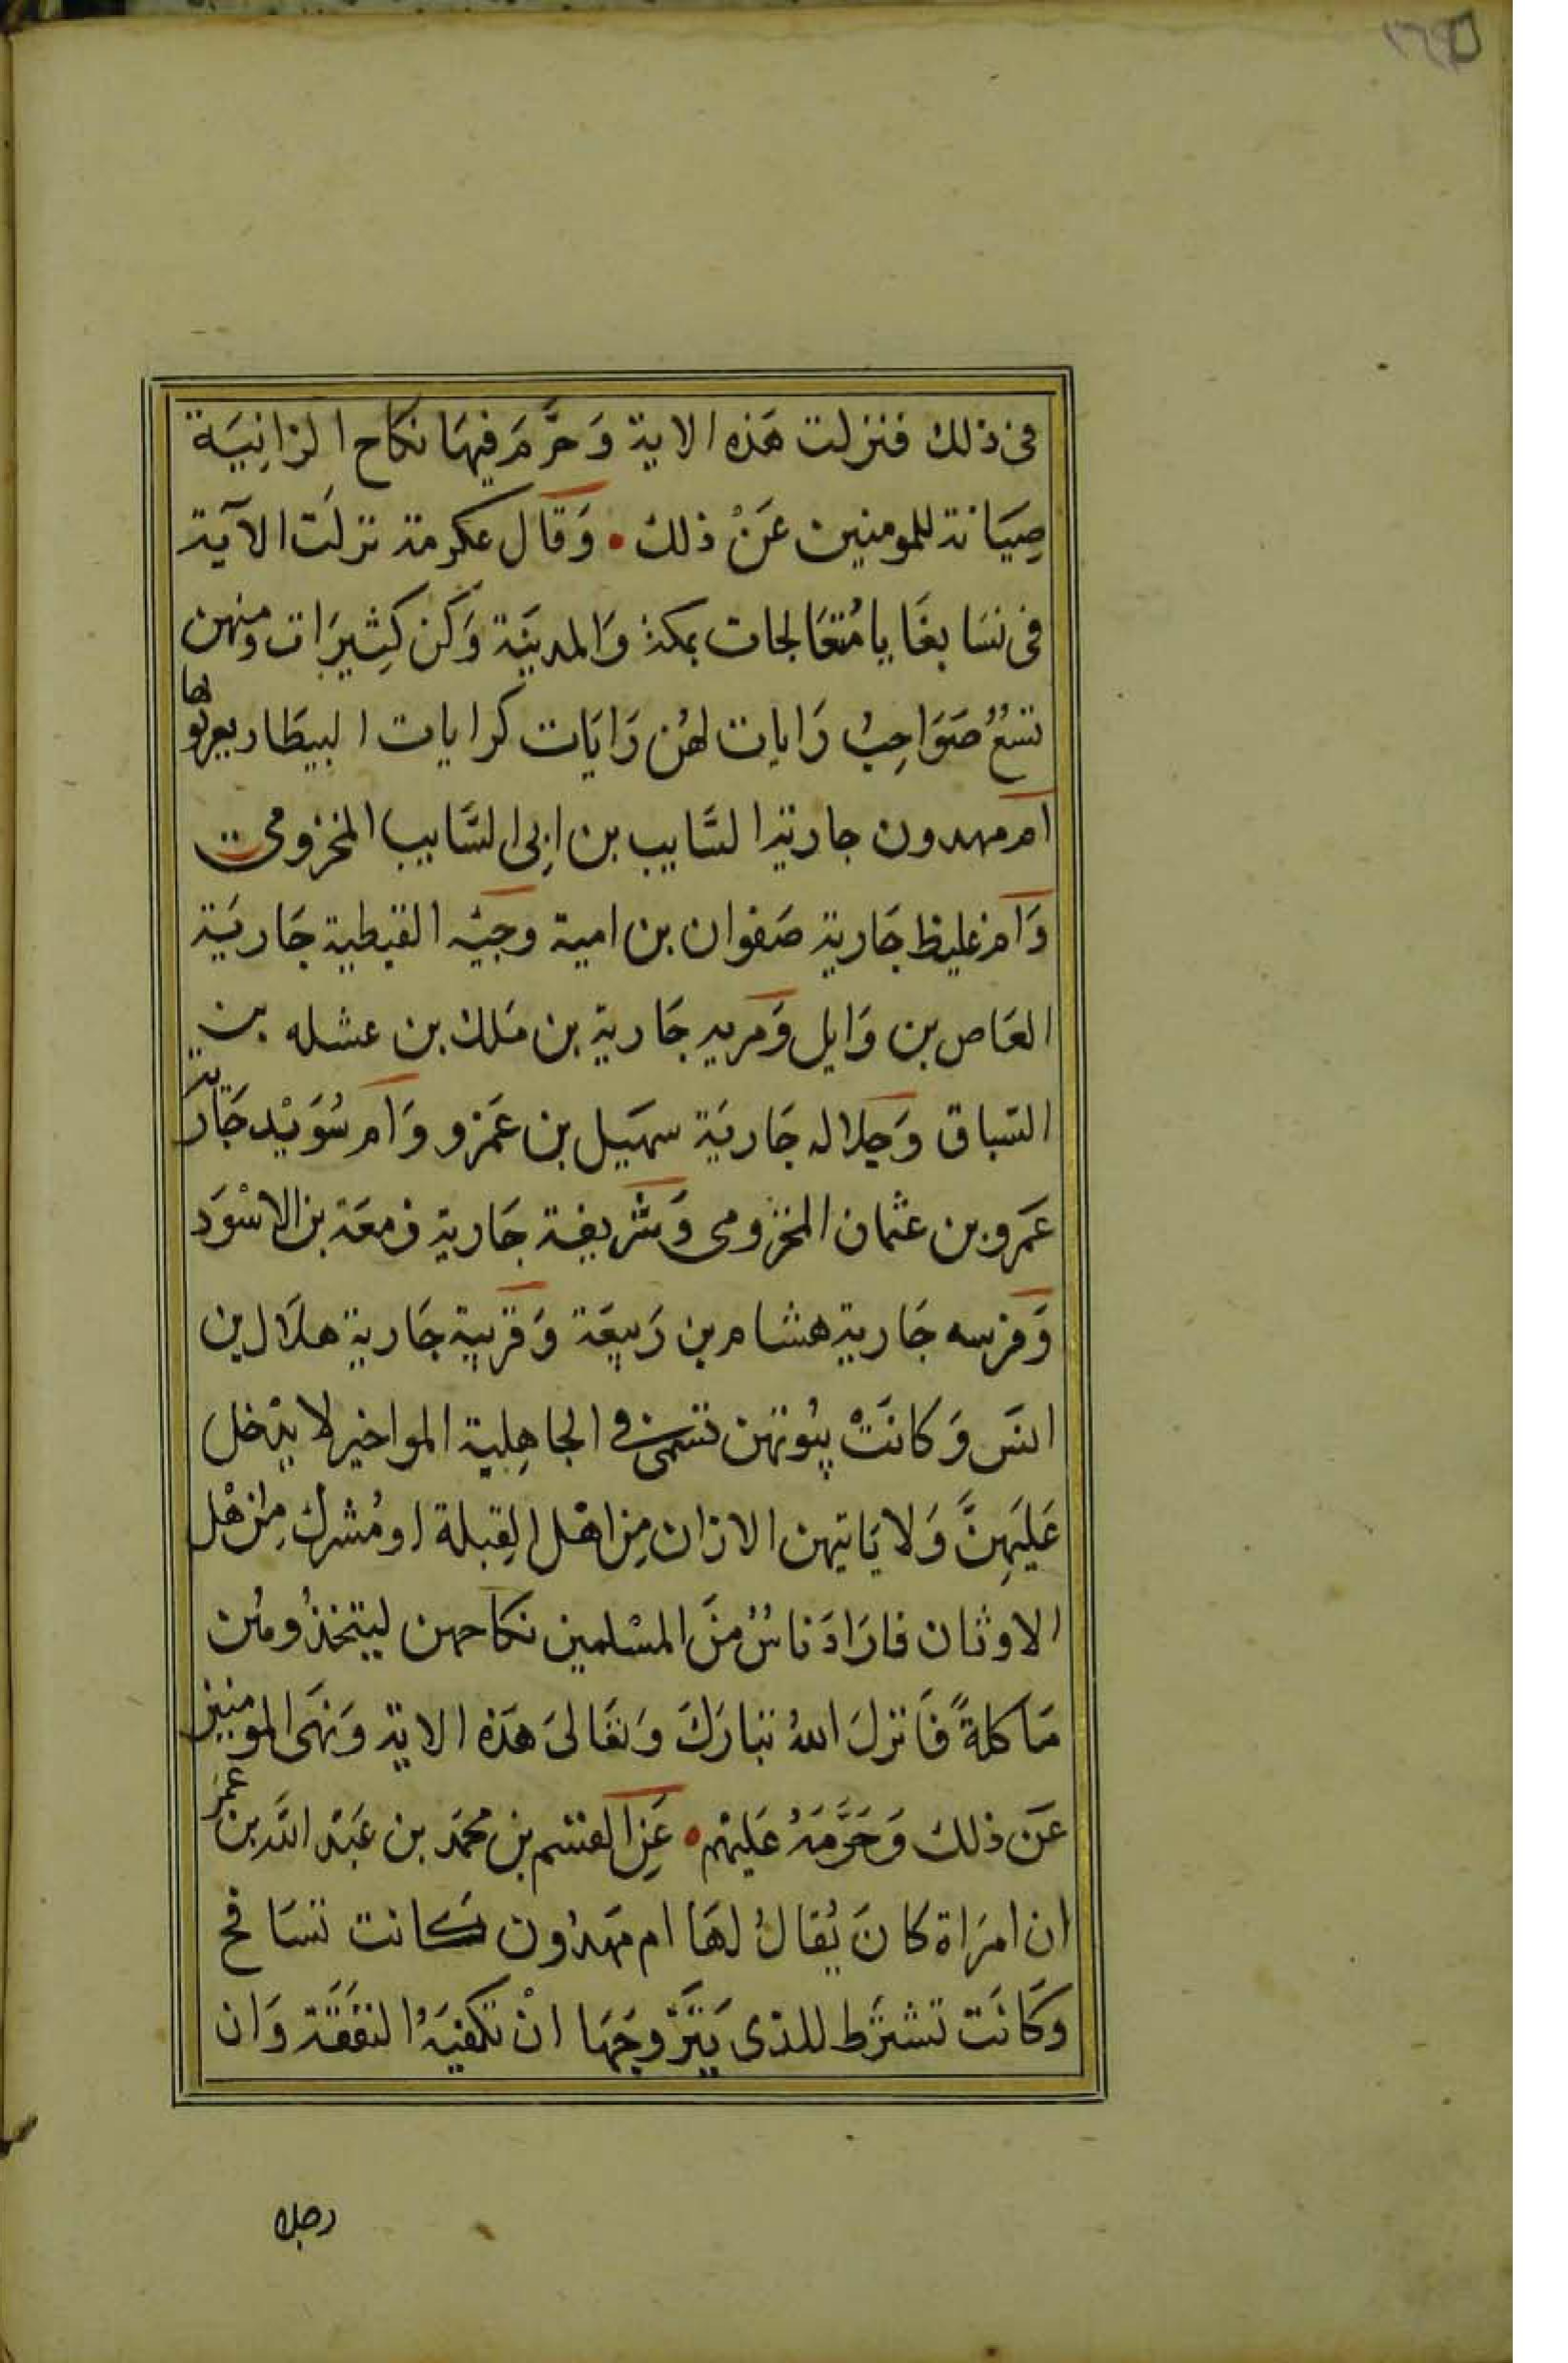 فى ذلك فنزلت هَذه الاية وَحرَّمَ فيهَا نكاح الزانِيَة
صِيَانة للمومنين عَنْ ذلك • وَقال عكرمة نزلَت الآية
فى نسَا بغَايا مُتعَالجات بمكة وَالمدينَة وَكن كِثيرَات ومنهن
تسْعُ صَوَاحِبُ رَايات لهُن رَايَات كرايات البيطار يعرفونها
ام مهدون جارية السَّايب بن ابِى السَّايب المخزومى
وَام غليظ جَارية صَفوان بن امية وحَيّه القبطية جَاريَة
العَاص بن وَايل وَمرية جَارية بن مَلك بن عشله بن
السّباق وَجلاله جَاريَة سهَيل بن عَمرو وَام سُوَيْد جَارَية
عَمرو بن عثمان المخزومى وَشريفة جَارية زمعَة بن الاسْوَد
وَفرسه جَارية هشام بن رَبيعَة وَقريبة جَارية هلَال بن
انسَ وَكانَتْ بيُوتهن تسمى في الجاهِلية المواخير لا يدْخل
عَليَهِنَّ وَلا يَاتيهن الا زان مِن اهْل القِبلة او مُشرك مِن هْل
الاوثان فارَادَ ناسٌ منَ المسْلمين نكاحهن ليتخذُومُن
مَاكلةً فَانزلَ اللهُ تبارَكَ وَتعَالىَ هَذه الاية وَنهَى المومنين
عَن ذلك وَحَرَّمَهُ عَليْهم • عَنِ القسم بن محمَد بن عَبْد اللَّه بن عمر
ان امرَاة كانَ يُقالُ لهَا ام مَهدُون كانت تسَافح
وَكَانَت تشترَط للذى يَتزَّوجَهَا انْ تكفيَهُ النفقَة وَان
رجلا